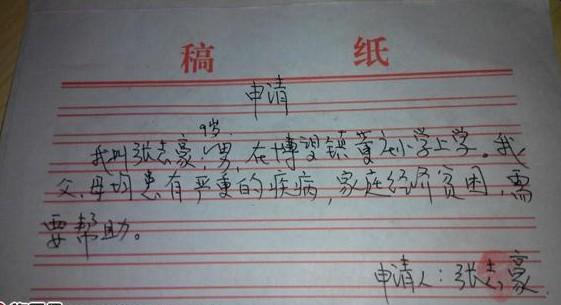 稿 纸
申请
9岁.
我叫张志豪,男,在博望镇董庄小学上学。我
父、母均患有严重的疾病,家庭经济贫困,需
要帮助。
申请人:张志豪.